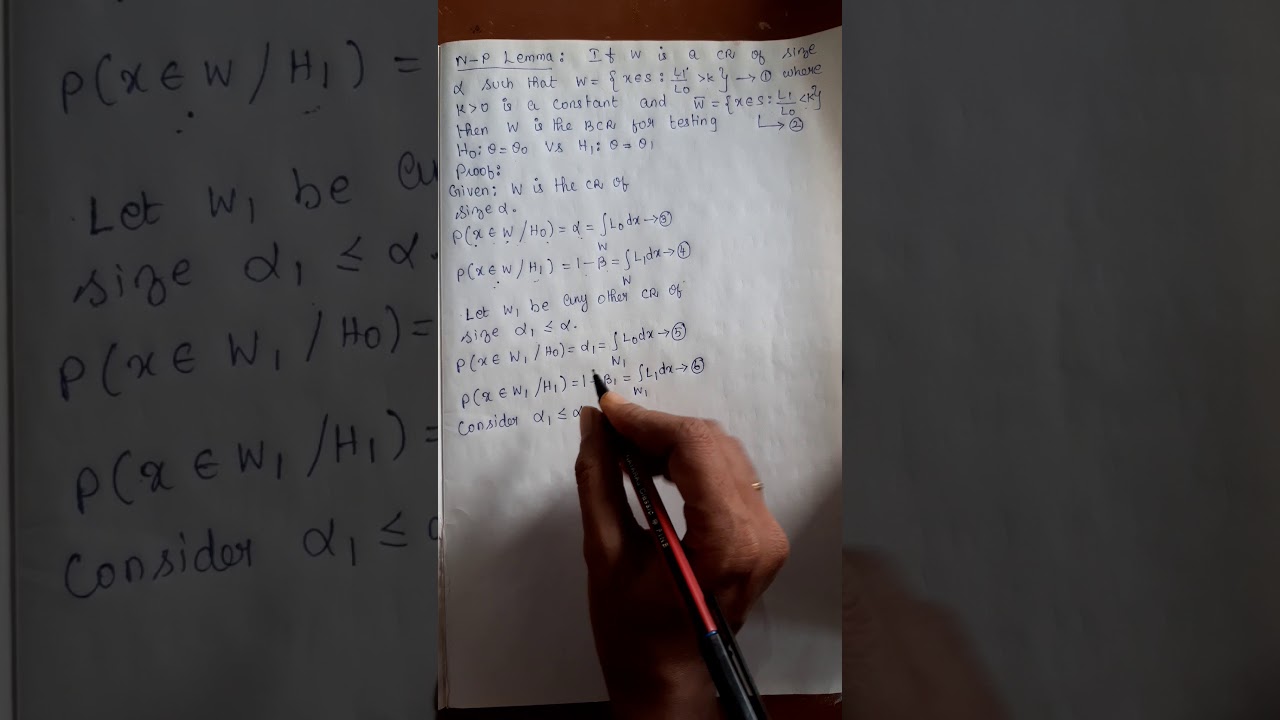 N-P Lemma: If W is a CR of size
α such that W = {x∈S : L1/L0 > k} → ① where
k>0 is a constant and W̅ = {x∈S : L1/L0 < k}
then W is the BCR for testing ↳ ②
H0: θ = θ0 Vs H1: θ = θ1
Proof:
Given: W is the CR of
size α.
P(x ∈ W / H0) = α = ∫W L0 dx → ③
P(x ∈ W / H1) = 1 - β = ∫W L1 dx → ④
Let W1 be any other CR of
size α1 ≤ α.
P(x ∈ W1 / H0) = α1 = ∫W1 L0 dx → ⑤
P(x ∈ W1 / H1) = 1 - β1 = ∫W1 L1 dx → ⑥
Consider α1 ≤ α